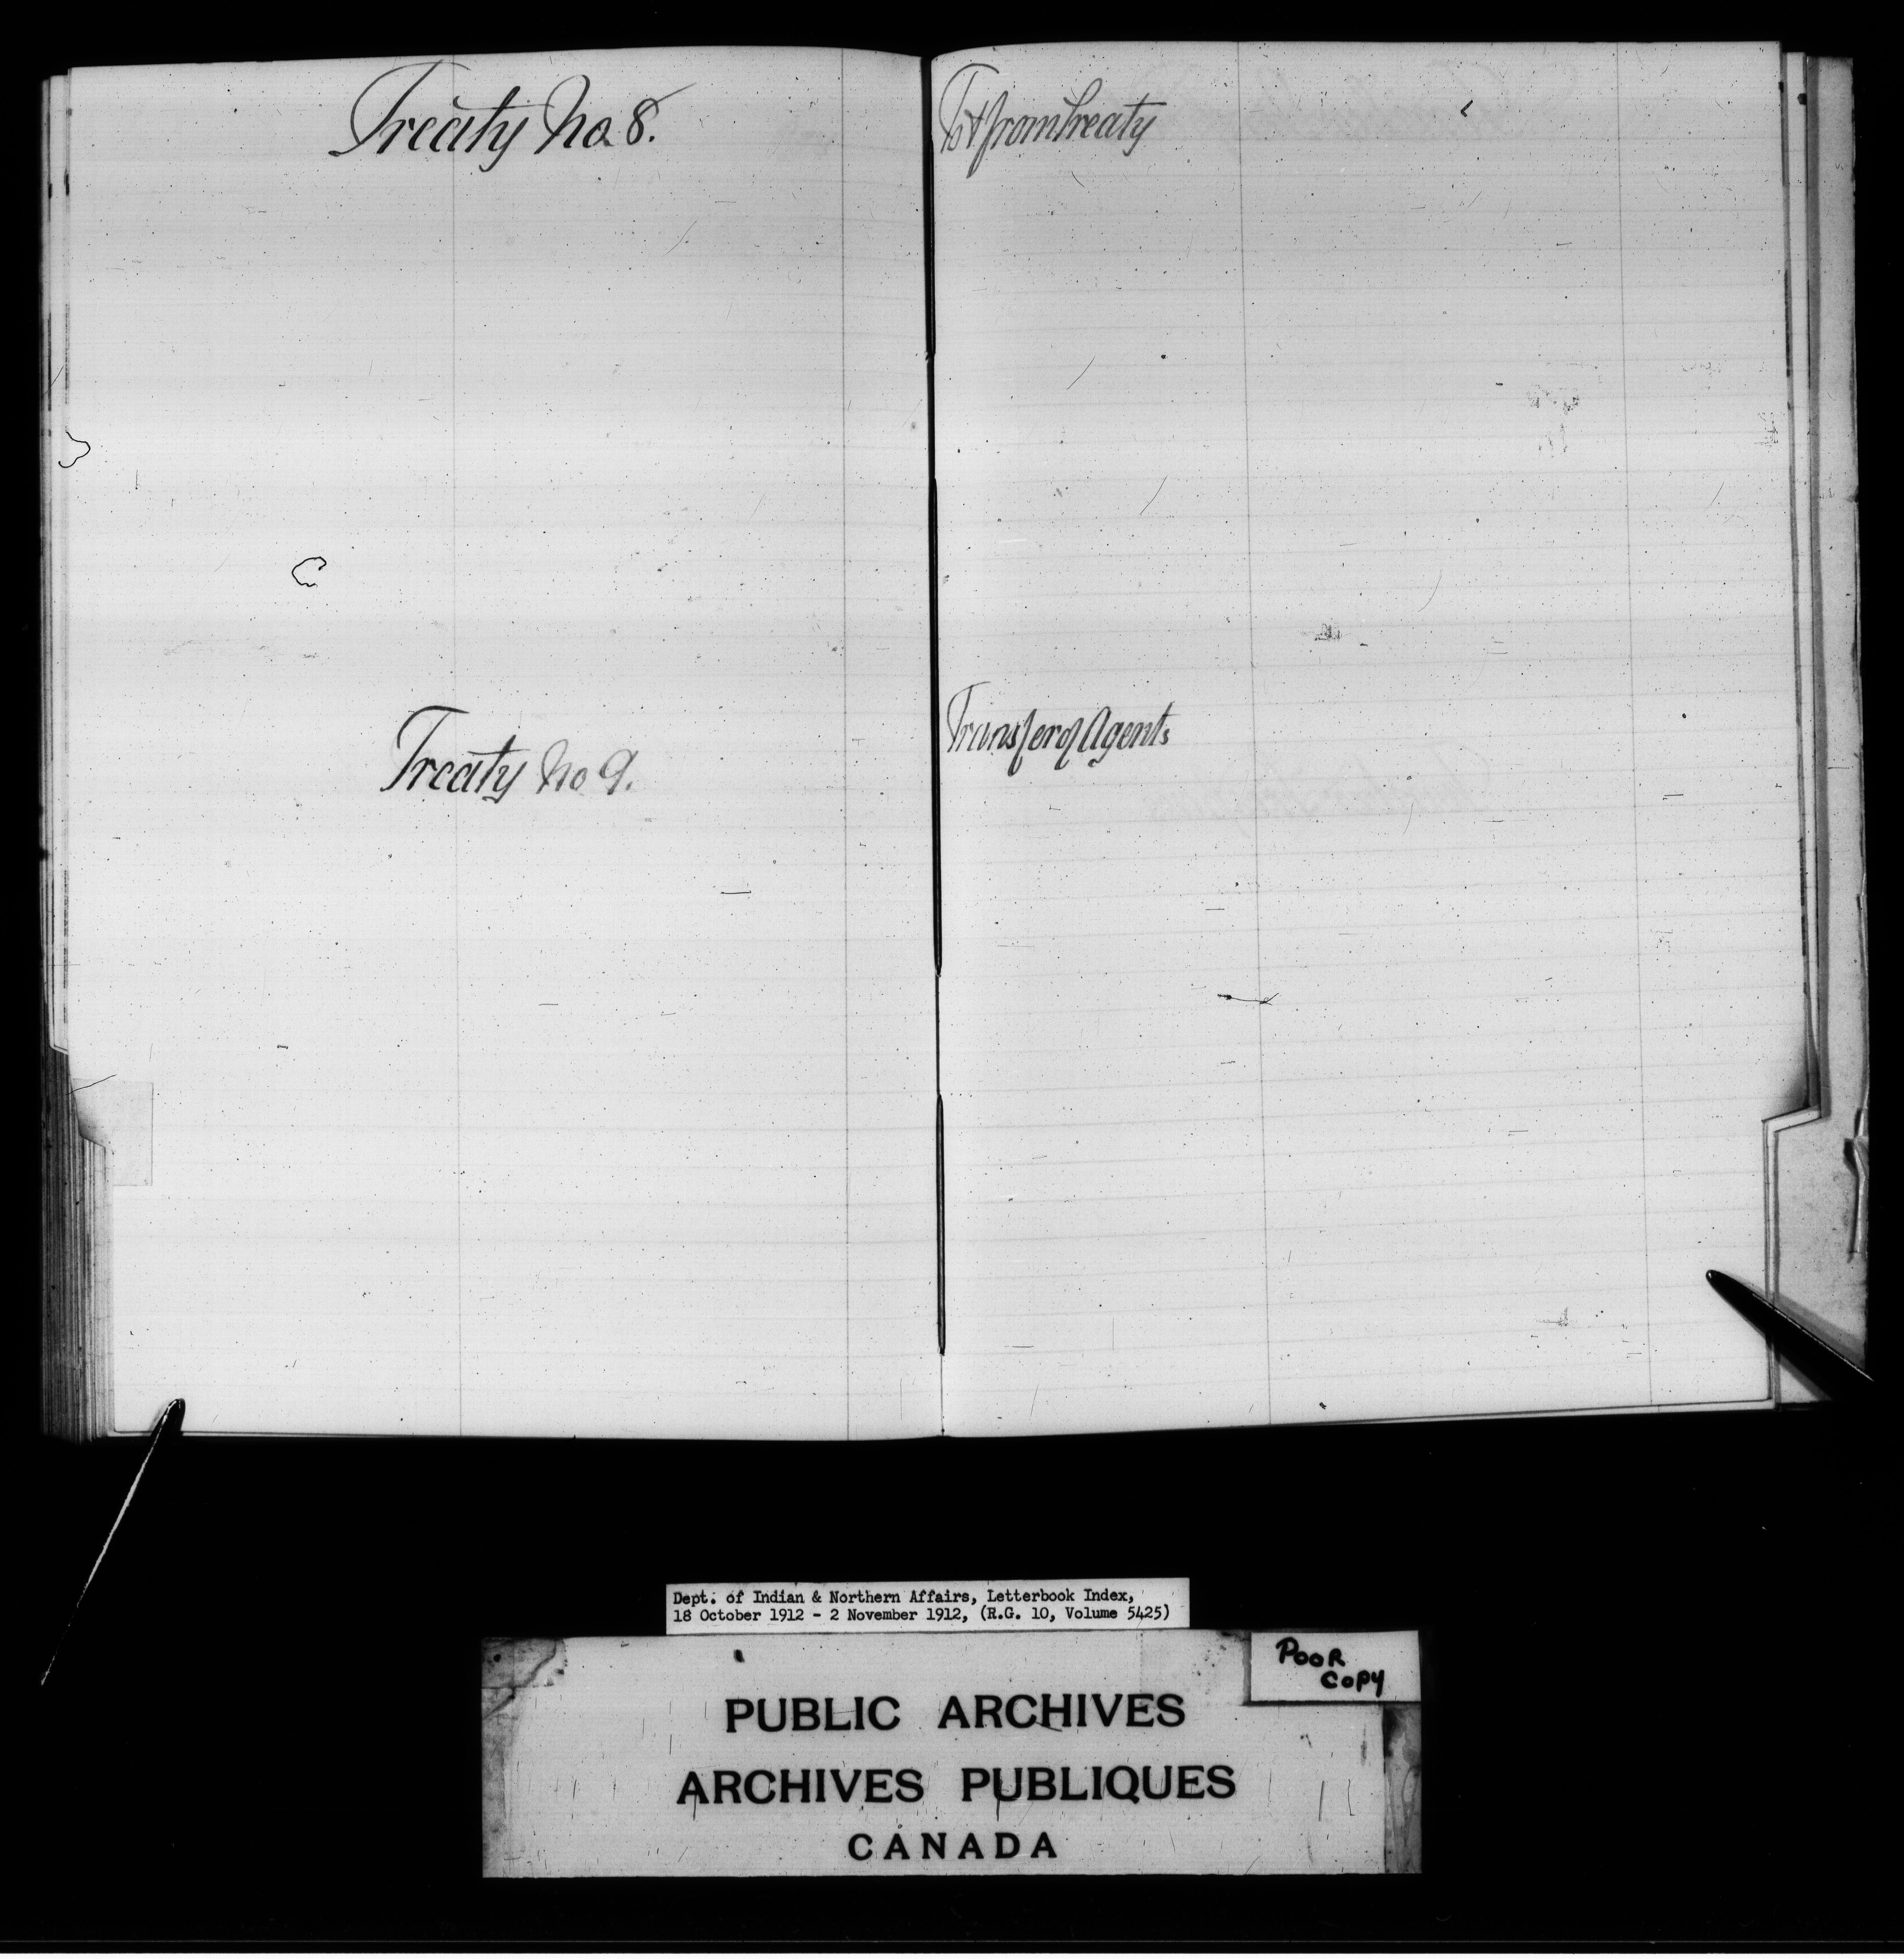 Treaty No. 8.
Treaty No 9.
To & from Treaty
Transfer of Agents
Dept. of Indian & Northern Affairs, Letterbook Index,
18 October 1912 - 2 November 1912, (R.G. 10, Volume 5425)
POOR
COPY
PUBLIC ARCHIVES
ARCHIVES PUBLIQUES
CANADA